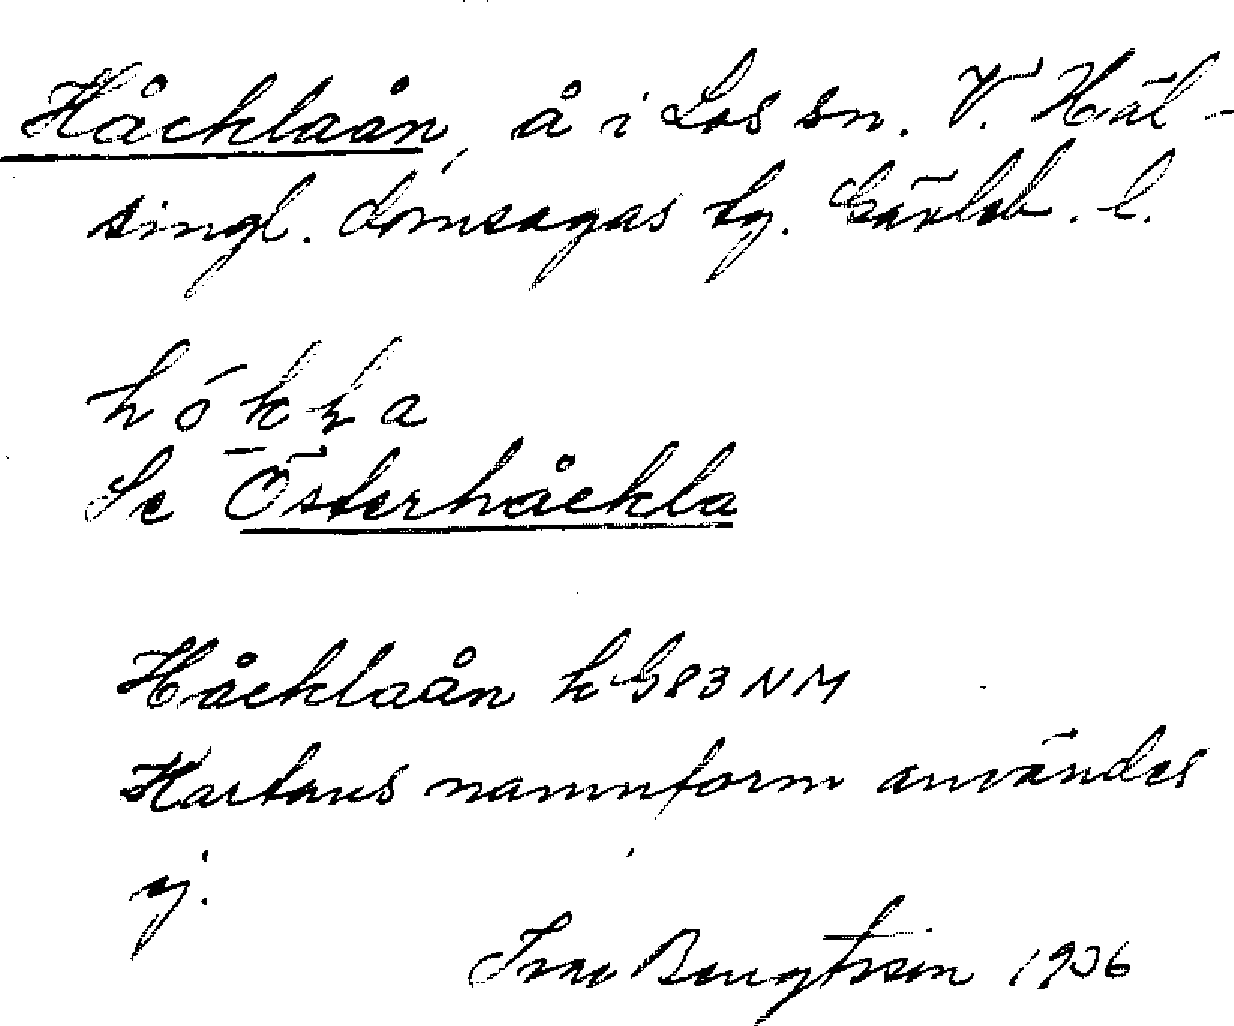 Håcklaån, å i Los sn. V. Häl-
singl. domsagas tg. Gävleb. l.
hókka
Se Österhåckla
Håcklaån k G83NM
Kartans namnform användes
ej.
Bengtsson 1936